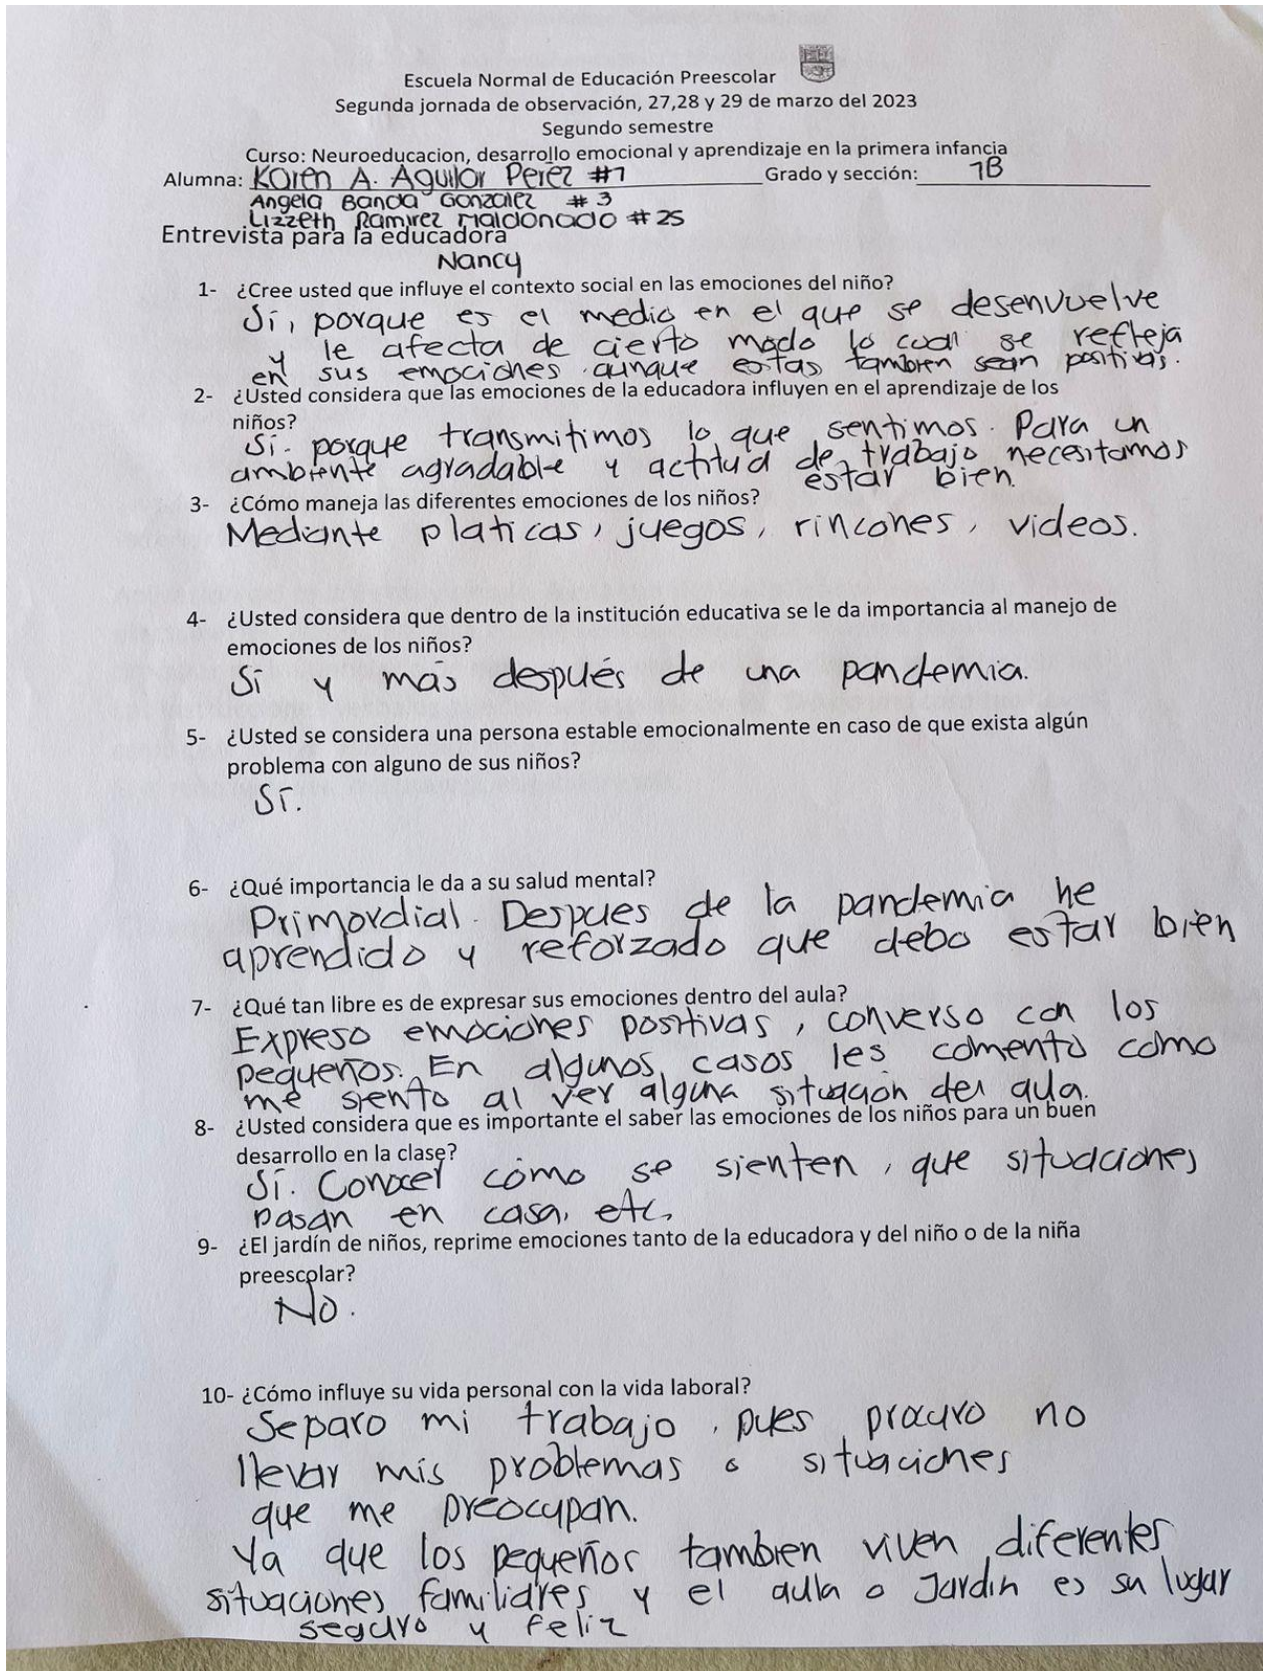 Escuela Normal de Educación Preescolar
Segunda jornada de observación, 27,28 y 29 de marzo del 2023
Segundo semestre
Curso: Neuroeducacion, desarrollo emocional y aprendizaje en la primera infancia
Alumna: Karen A. Aguilar Peréz #1 Grado y sección: 1B
Angela Banda Gonzalez #3
Lizzeth Ramirez Maldonado #25
Entrevista para la educadora
Nancy
1- ¿Cree usted que influye el contexto social en las emociones del niño?
Sí, porque es el medio en el que se desenvuelve
y le afecta de cierto modo lo cual se refleja
en sus emociones aunque estas tambien sean positivas.
2- ¿Usted considera que las emociones de la educadora influyen en el aprendizaje de los
niños?
Si. porque transmitimos lo que sentimos. Para un
ambiente agradable y actitud de trabajo necesitamos
estar bien.
3- ¿Cómo maneja las diferentes emociones de los niños?
Mediante platicas, juegos, rincones, videos.
4- ¿Usted considera que dentro de la institución educativa se le da importancia al manejo de
emociones de los niños?
Sí y más después de una pandemia.
5- ¿Usted se considera una persona estable emocionalmente en caso de que exista algún
problema con alguno de sus niños?
Sí.
6- ¿Qué importancia le da a su salud mental?
Primordial. Despues de la pandemia he
aprendido y reforzado que debo estar bien
7- ¿Qué tan libre es de expresar sus emociones dentro del aula?
Expreso emociones positivas, converso con los
pequeños. En algunos casos les comento como
me siento al ver alguna situación del aula.
8- ¿Usted considera que es importante el saber las emociones de los niños para un buen
desarrollo en la clase?
Sí. Conocer cómo se sienten, que situaciones
pasan en casa, etc.
9- ¿El jardín de niños, reprime emociones tanto de la educadora y del niño o de la niña
preescolar?
No.
10- ¿Cómo influye su vida personal con la vida laboral?
Separo mi trabajo, pues procuro no
llevar mis problemas o situaciones
que me preocupan.
Ya que los pequeños tambien viven diferentes
situaciones familiares y el aula o Jardín es su lugar
seguro y feliz